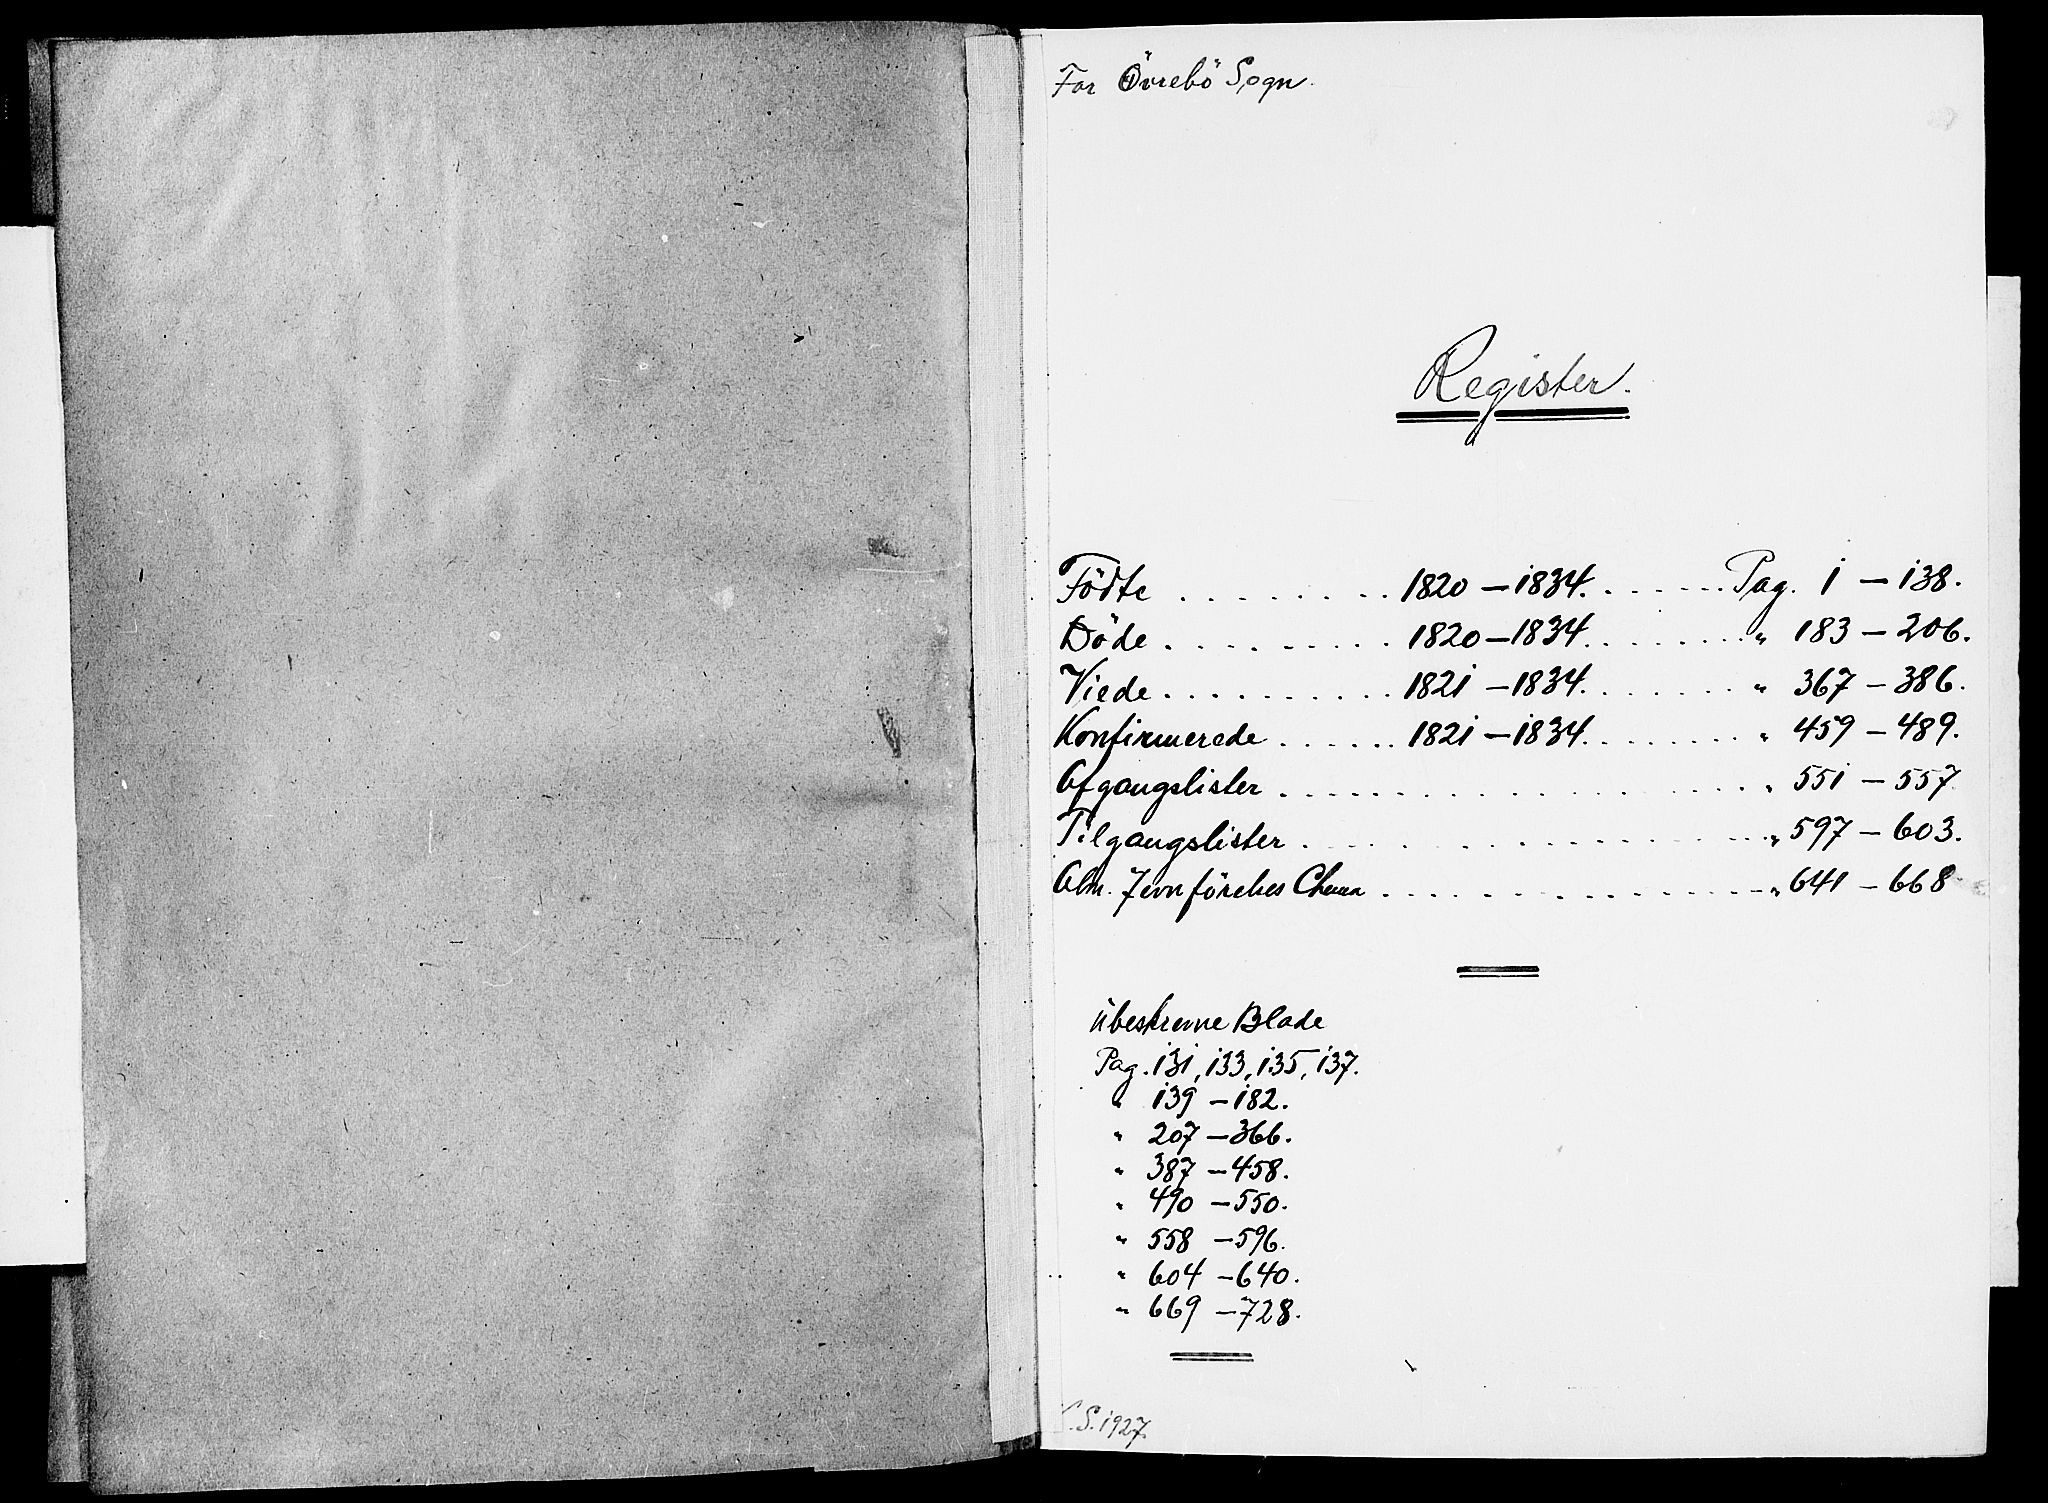 For Övrebö Sogn.
Register.
Födte ......... 1820 – 1834. ...... Pag. 1 – 138.
Döde ......... 1820 – 1834. ...... " 183 – 206.
Viede .......... 1821 – 1834. ...... " 367 – 386.
Konfirmerede ...... 1821 – 1834. ...... " 459 – 489.
Afgangslister ...... " 551 – 557
Tilgangslister ...... " 597 – 603.
Alm. Jevnförelses ...... " 641 – 668
Ubeskrevne Blade
Pag. 131, 133, 135, 137.
" 139 – 182.
" 207 – 366.
" 387 – 458.
" 490 – 550.
" 558 – 596.
" 604 – 640.
" 669 – 728.
S. 1927.